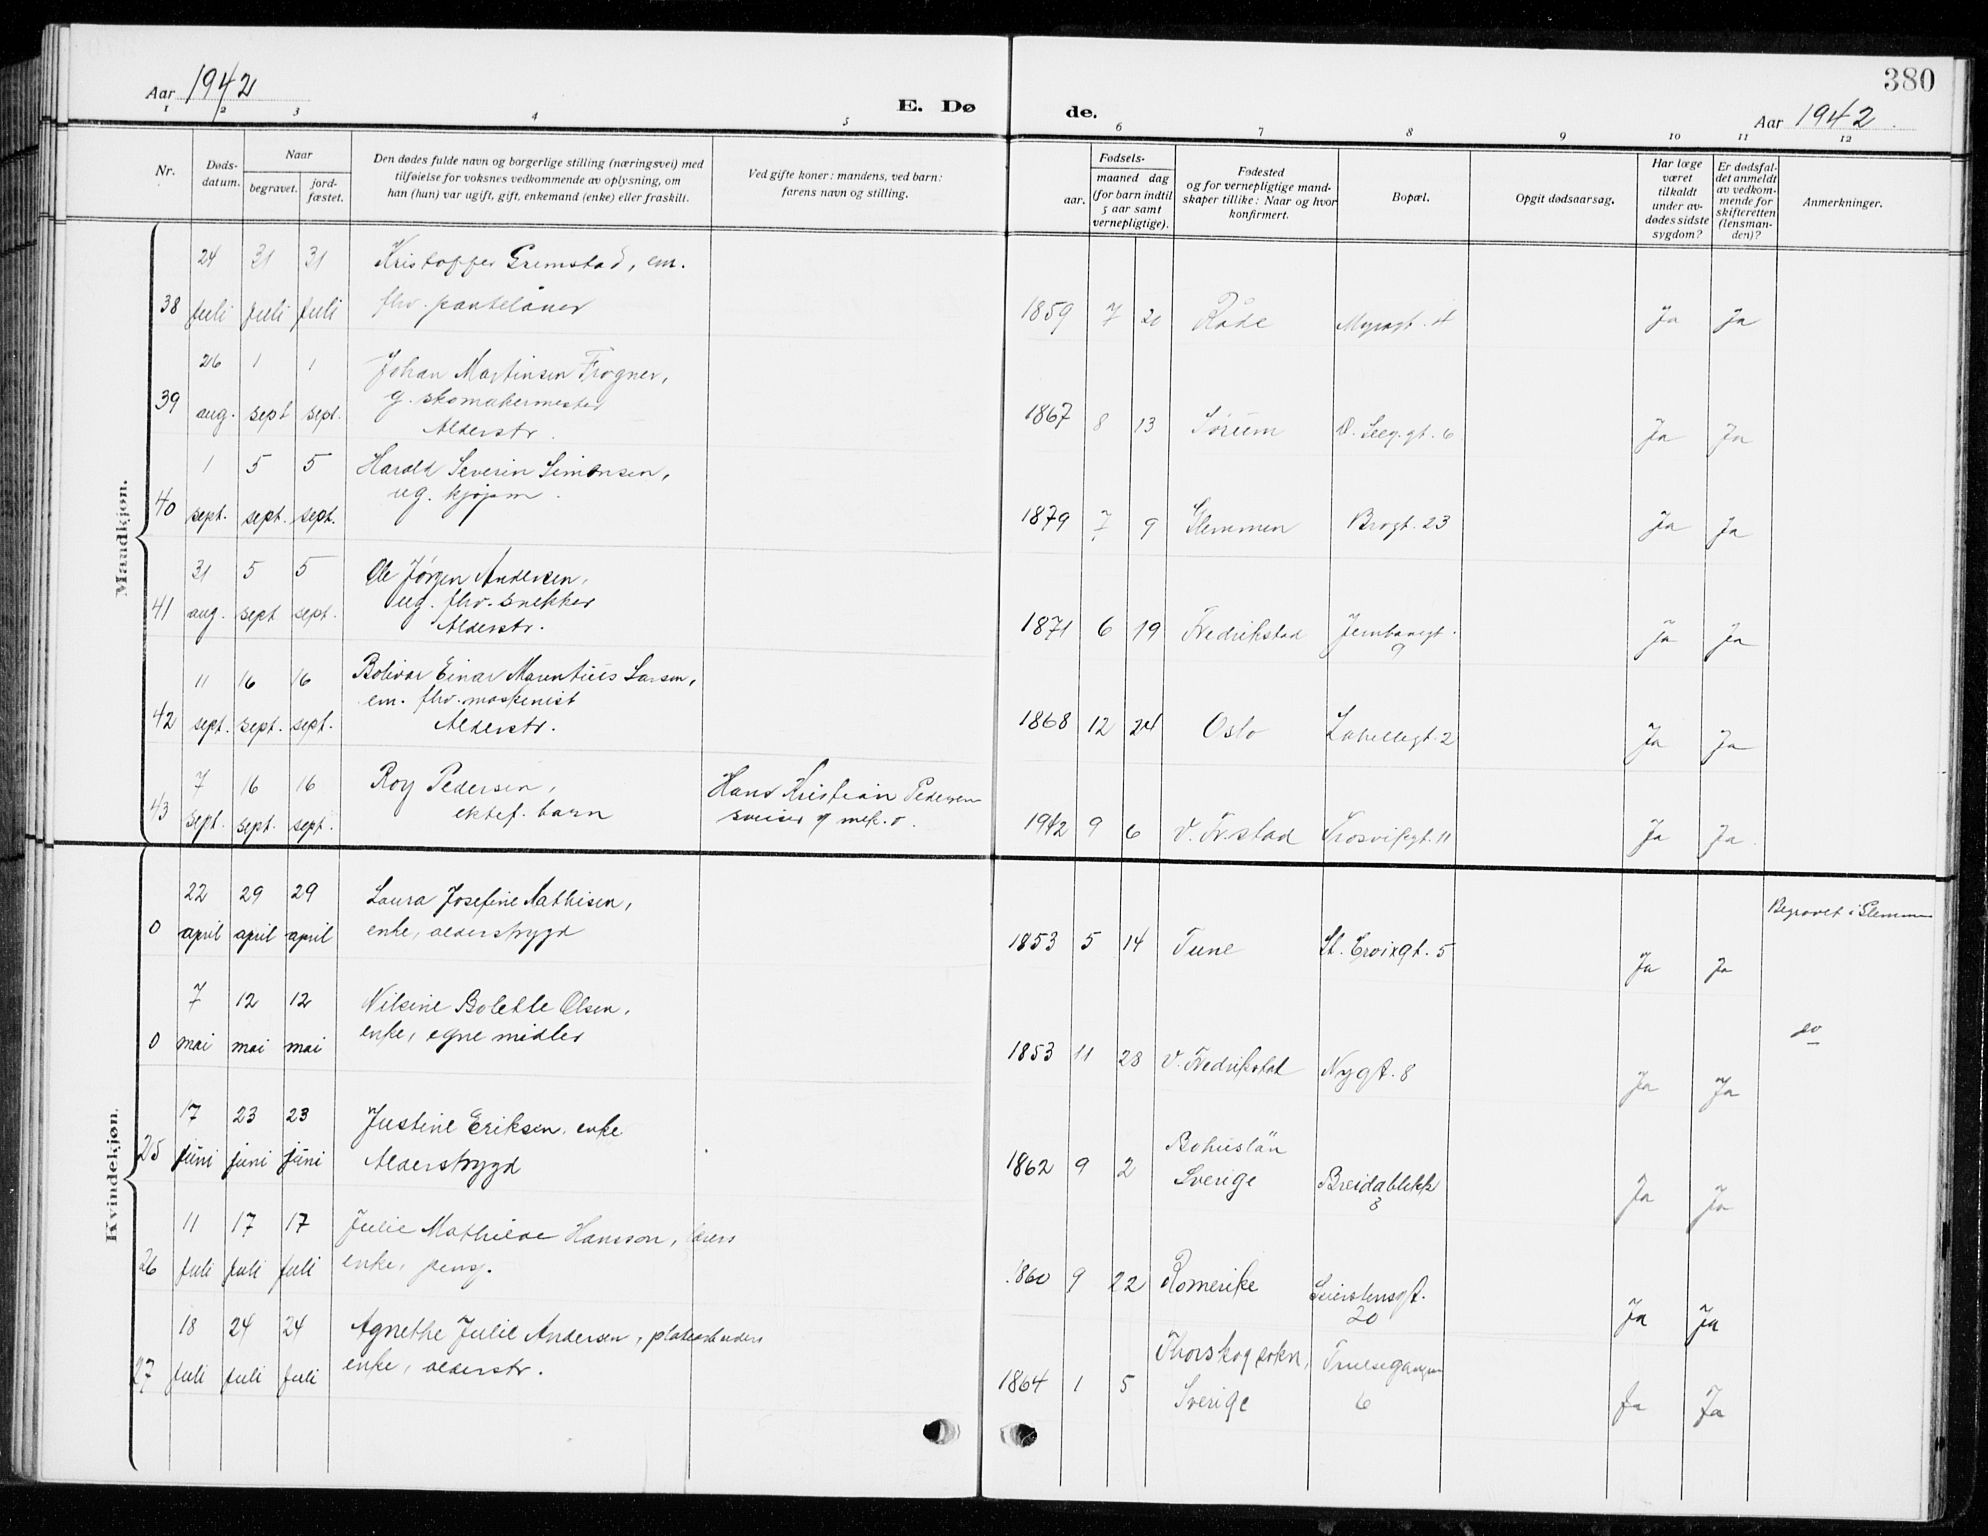 380
Aar 1942
E. Dø de.
Aar 1942
1 2 3 4 5 6 7 8 9 10 11 12
Nr.
Døds-
datum.
Naar
begravet.
jord-
fæstet.
Den dødes fulde navn og borgerlige stilling (næringsvei) med
tilføielse for voksnes vedkommende av oplysning, om
han (hun) var ugift, gift, enkemand (enke) eller fraskilt.
Ved gifte koner: mandens, ved barn:
farens navn og stilling.
Fødsels-
aar.
maaned dag
(for barn indtil
5 aar samt
vernepligtige).
Fødested
og for vernepligtige mand-
skaper tillike: Naar og hvor
konfirmert.
Bopæl.
Opgit dødsaarsag.
Har læge
været
tilkaldt
under av-
dødes sidste
sygdom?
Er dødsfal-
det anmeldt
av vedkom-
mende for
skifteretten
(lensman-
den)?
Anmerkninger.
Maandkjøn.
24 31 31 Kristoffer Gremstad, em.
38 juli juli juli fhv. pantelåner 1859 7 20 Råde Myragt. 4 Ja Ja
26 1 1 Johan Martinsen Frogner,
39 aug. sept sept. g. skomakermester 1867 8 13 Sørum O. gt. 6 Ja Ja
Alderstr.
1 5 5 Harald Severin Simonsen,
40 sept. sept. sept. ug. kjøpm. 1879 7 9 Glemmen Brogt. 23 Ja Ja
31 5 5 Ole Jørgen Andersen,
41 aug. sept sept. ug. fhv. snekker 1871 6 19 Fredrikstad Jernbanegt. 9 Ja Ja
Alderstr.
11 16 16 Bolivar Einar Marentius Larsen,
42 sept. sept. sept. em. fhv. maskinist 1868 12 24 Oslo Lahellegt. 2 Ja Ja
Alderstr.
7 16 16 Roy Pedersen, Hans Kristian Pedersen
43 sept. sept. sept. ektef. barn sveiser v mek. v. 1942 9 6 V. Fr.stad Trosvikgt. 11 Ja Ja
Kvindekjøn.
22 29 29 Laura Josefine Mathisen, Begravet i Glemmen
0 april april april enke, alderstrygd 1853 5 14 Tune St. Croixgt. 5 Ja Ja
7 12 12 Nilsine Bolette Olsen,
0 mai mai mai enke, egne midler 1853 11 28 V. Fredrikstad Nygt. 8 Ja Ja do
17 23 23 Justine Eriksen, enke
25 juni juni juni Alderstrygd 1862 9 2 Bohuslän Sverige Breidablikk 8 Ja Ja
11 17 17 Julie Mathilde Hansson,
26 juli juli juli enke, pensj. 1860 9 22 Romerike Seierstensgt. 20 Ja Ja
18 24 24 Agnethe Julie Andersen, platearbeiders
27 juli juli juli enke, alderstr. 1864 1 5 Thorskog sokn, Sverige Trulsegangen 6 Ja Ja